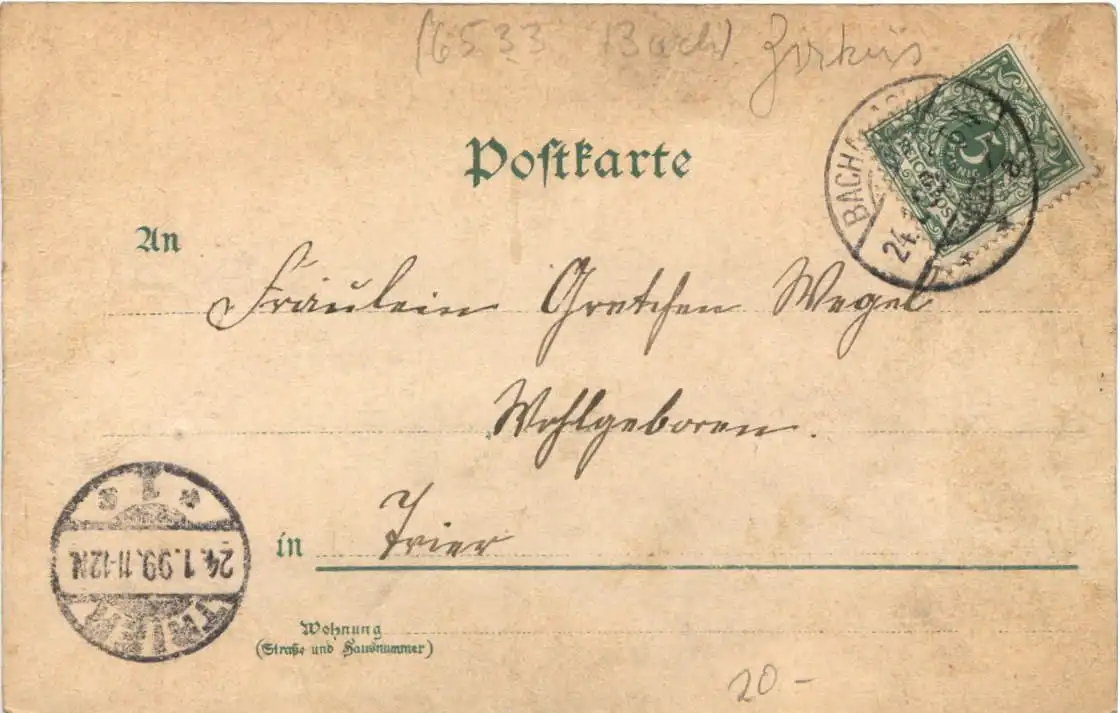 (6533 Bach). Zirkus
Postkarte
BACHA
24.
5
PFENNIG
REICHSPOST
An
Fräulein Gretchen Wegel
Wohlgeboren.
in Trier
TRIER
24.1.99.11-12N.
* 1 c
Wohnung
(Straße und Hausnummer)
20-